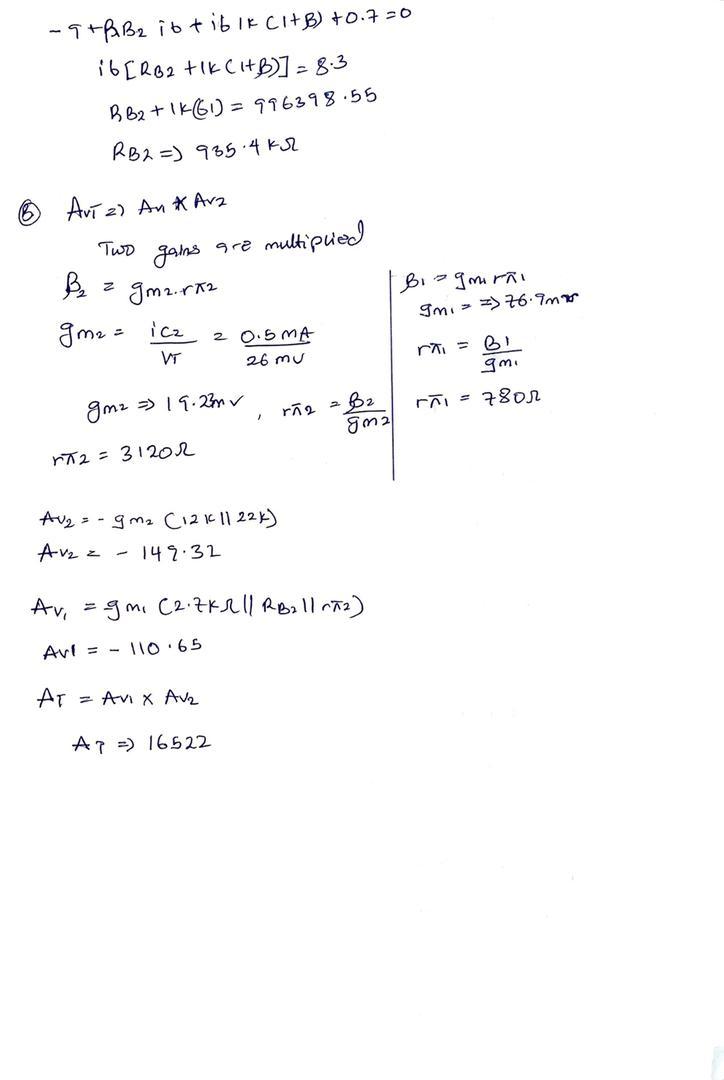 -9+RB2 ib + ib 1K (1+β) +0.7=0
ib[RB2 +1K(1+β)] = 8.3
RB2+1K(61) = 996398.55
RB2 => 935.4 KΩ
Ⓑ AvT => Av1 * Av2
Two gains are multiplied
β2 = gm2.rπ2
gm2 = ic2/VT = 0.5 mA/26 mV
gm2 => 19.23m℧, rπ2 = β2/gm2
rπ2 = 3120Ω
β1 = gm1 rπ1
gm1 = => 76.9m℧
rπ1 = β1/gm1
rπ1 = 780Ω
Av2 = - gm2 (12K||22K)
Av2 = - 149.32
Av1 = gm1 (2.7KΩ|| RB2|| rπ2)
Av1 = - 110.65
AT = Av1 x Av2
AT => 16522